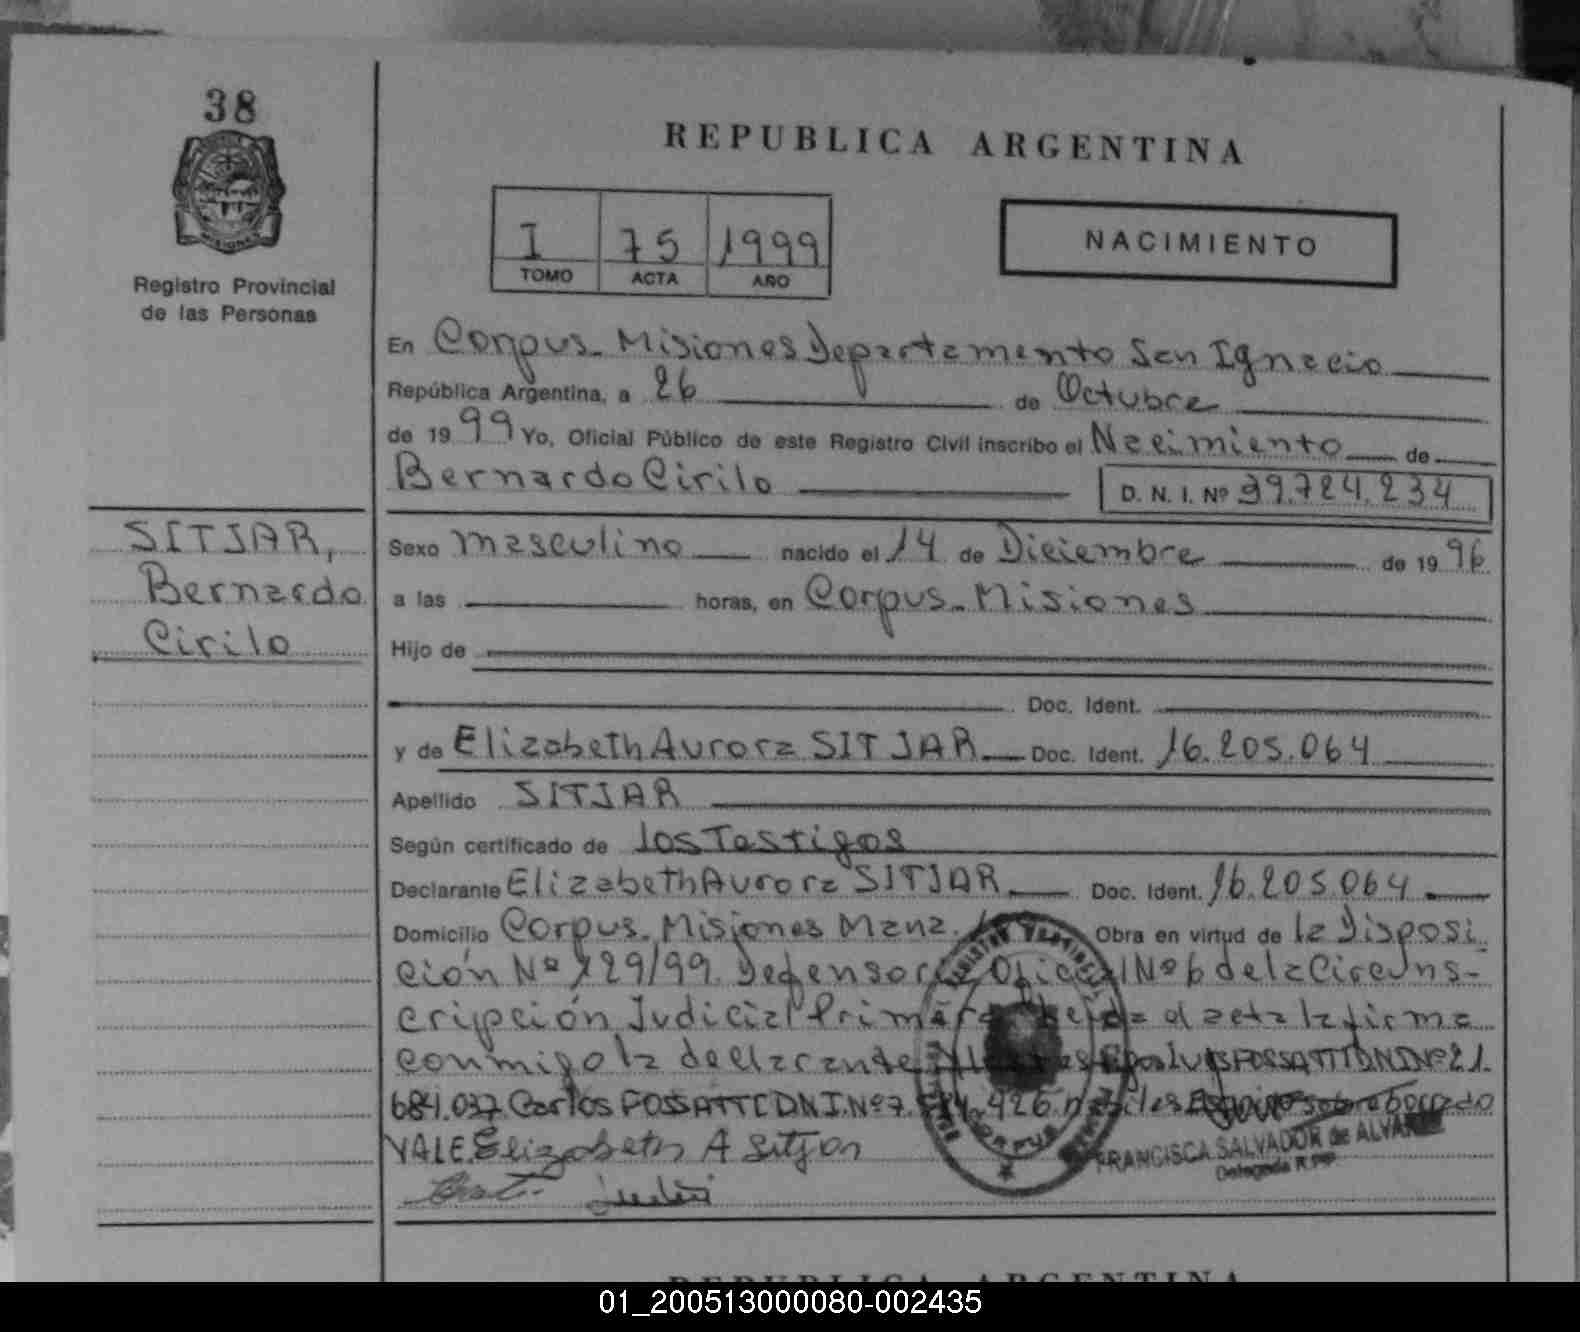 38
MISIONES
Registro Provincial
de las Personas
REPUBLICA ARGENTINA
I 75 1999
TOMO ACTA AÑO
NACIMIENTO
En Corpus - Misiones Departamento San Ignacio
República Argentina, a 26 de Octubre
de 1999 Yo, Oficial Público de este Registro Civil inscribo el Nacimiento de
Bernardo Cirilo D. N. I. Nº 39.724.234
SITJAR,
Bernardo
Cirilo
Sexo masculino nacido el 14 de Diciembre de 1996
a las horas, en Corpus - Misiones
Hijo de
Doc. Ident.
y de Elizabeth Aurora SITJAR Doc. Ident. 16.205.064
Apellido SITJAR
Según certificado de los Testigos
Declarante Elizabeth Aurora SITJAR Doc. Ident. 16.205.064
Domicilio Corpus - Misiones Manz. Obra en virtud de la Disposi
ción Nº 129/99. Defensoría Oficial Nº 6 de la Circuns-
cripción Judicial Primera el acta la firma
conmigo la declarante Luis FOSSATTI DNI Nº 21.
684.037 Carlos FOSSATTI D.N.I. Nº 7. 426 sobre borrado
VALE. Elizabeth A Sitjar
FRANCISCA SALVADOR de ALVAREZ
Delegada R.PP.
CORPUS
REPUBLICA ARGENTINA
01_200513000080-002435